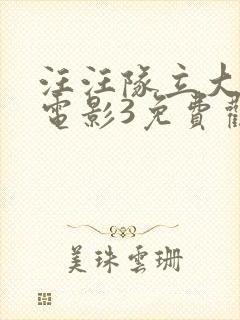 汪汪隊立大
電影3免費觀
美珠雲珊